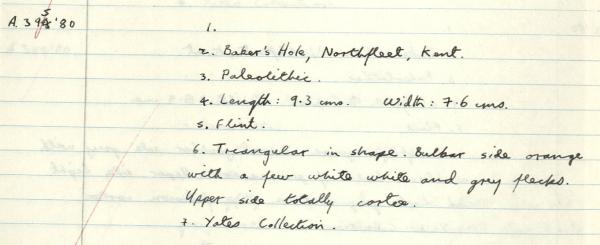 A.395'80
1.
2. Baker's Hole, Northfleet, Kent.
3. Paleolithic.
4. Length: 9.3 cms. Width: 7.6 cms.
5. Flint.
6. Triangular in shape. Bulbar side orange
with a few white white and grey flecks.
Upper side totally cortex.
7. Yates Collection.